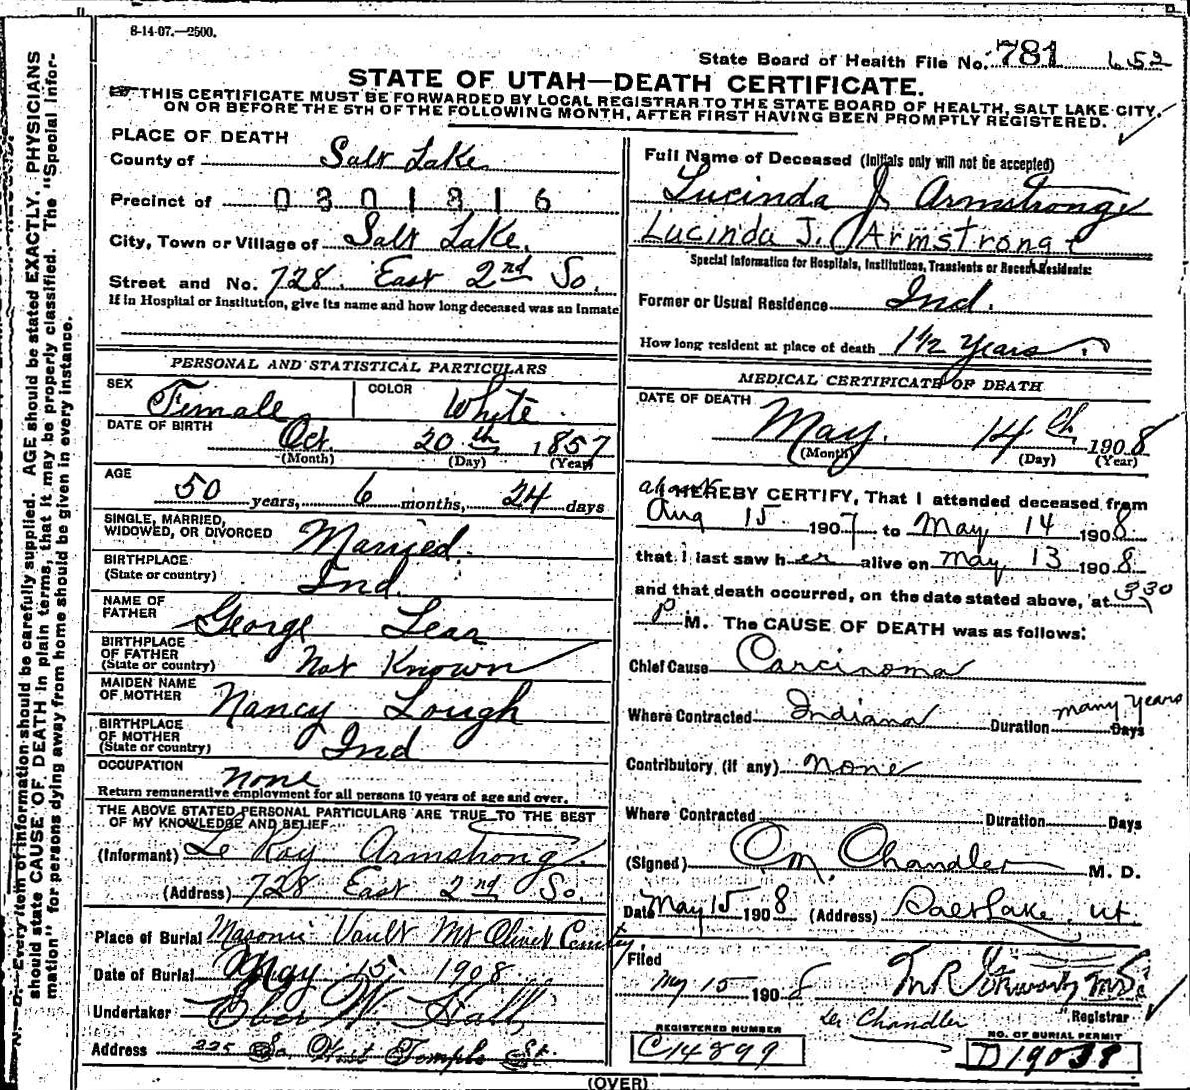 8-14-07.—2500.
State Board of Health File No. 781 652
STATE OF UTAH—DEATH CERTIFICATE.
THIS CERTIFICATE MUST BE FORWARDED BY LOCAL REGISTRAR TO THE STATE BOARD OF HEALTH, SALT LAKE CITY,
ON OR BEFORE THE 5TH OF THE FOLLOWING MONTH, AFTER FIRST HAVING BEEN PROMPTLY REGISTERED.
PLACE OF DEATH
County of Salt Lake
Precinct of 0301816
City, Town or Village of Salt Lake.
Street and No. 728 East 2nd So.
If in Hospital or Institution, give its name and how long deceased was an inmate
PERSONAL AND STATISTICAL PARTICULARS
SEX Female COLOR White
DATE OF BIRTH Oct. 20th 1857
(Month) (Day) (Year)
AGE
50 years, 6 months, 24 days
SINGLE, MARRIED,
WIDOWED, OR DIVORCED Married.
BIRTHPLACE
(State or country) Ind.
NAME OF
FATHER George Lear
BIRTHPLACE
OF FATHER
(State or country) Not Known
MAIDEN NAME
OF MOTHER Nancy Lough
BIRTHPLACE
OF MOTHER
(State or country) Ind
OCCUPATION none
Return remunerative employment for all persons 10 years of age and over.
THE ABOVE STATED PERSONAL PARTICULARS ARE TRUE TO THE BEST
OF MY KNOWLEDGE AND BELIEF
(Informant) Le Roy Armstrong.
(Address) 728 East 2nd So.
Place of Burial Masonic Vault Mt Olivet Cemetery
Date of Burial May 15, 1908
Undertaker Eber W Hall
Address 225 So West Temple St.
Full Name of Deceased (Initials only will not be accepted)
Lucinda J Armstrong
Lucinda J. Armstrong
Special Information for Hospitals, Institutions, Transients or Recent Residents:
Former or Usual Residence Ind.
How long resident at place of death 1 1/2 Years
MEDICAL CERTIFICATE OF DEATH
DATE OF DEATH
May. 14th 1908
(Month) (Day) (Year)
about
I HEREBY CERTIFY, That I attended deceased from
Aug 15 1907 to May 14 1908
that I last saw her alive on May 13 1908
and that death occurred, on the date stated above, at 3 30
p M. The CAUSE OF DEATH was as follows:
Chief Cause Carcinoma
Where Contracted Indiana Duration many years Days
Contributory (if any) none
Where Contracted Duration Days
(Signed) O.M. Chandler M. D.
Date May 15 1908 (Address) Salt Lake. Ut.
Filed
May 15 1908
Registrar
Chandler
REGISTERED NUMBER
C14899
NO. OF BURIAL PERMIT
D19038
(OVER)
Every item of information should be carefully supplied. AGE should be stated EXACTLY. PHYSICIANS
should state CAUSE OF DEATH in plain terms, that it may be properly classified. The "Special Infor-
mation" for persons dying away from home should be given in every instance.